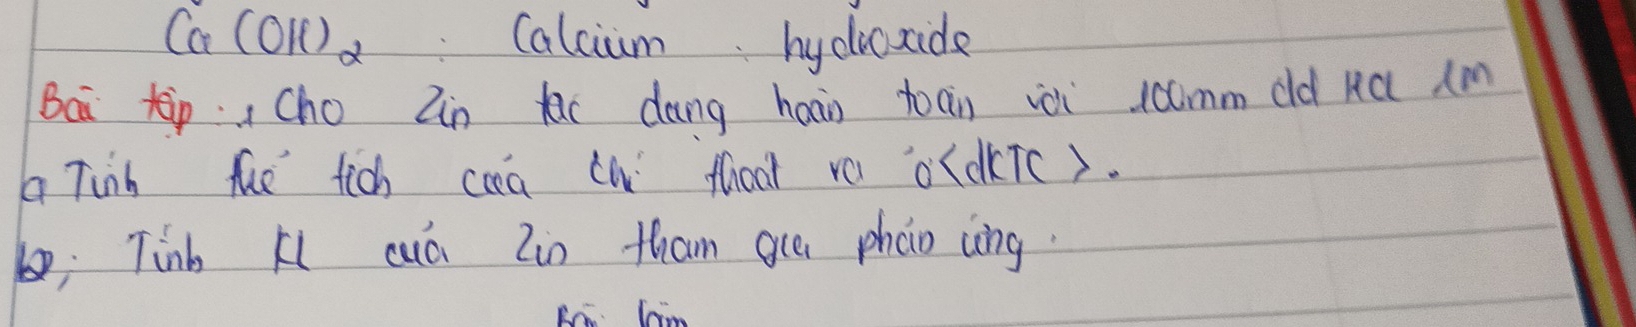 Ca(OH)2 : Calcium hydroxide
Bài tập: 1 Cho Zin tác dụng hoàn toàn với 100mm dd HCl 1M
a Tính thể tích của chí thoát ra ở <dKTC>.
b; Tính Kl của Zin tham gia phản ứng.
Bài làm